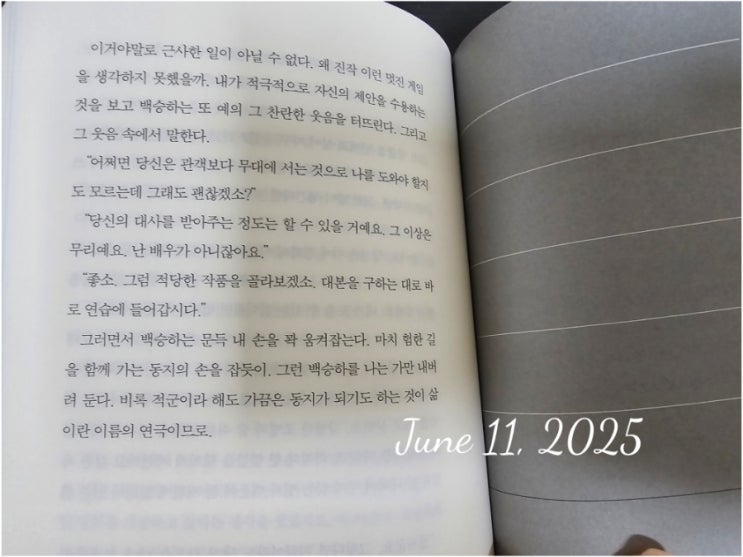 이거야말로 근사한 일이 아닐 수 없다. 왜 진작 이런 멋진 게임
을 생각하지 못했을까. 내가 적극적으로 자신의 제안을 수용하는
것을 보고 백승하는 또 예의 그 찬란한 웃음을 터뜨린다. 그리고
그 웃음 속에서 말한다.
“어쩌면 당신은 관객보다 무대에 서는 것으로 나를 도와야 할지
도 모르는데 그래도 괜찮겠소?”
“당신의 대사를 받아주는 정도는 할 수 있을 거예요. 그 이상은
무리예요. 난 배우가 아니잖아요.”
“좋소. 그럼 적당한 작품을 골라보겠소. 대본을 구하는 대로 바
로 연습에 들어갑시다.”
그러면서 백승하는 문득 내 손을 꽉 움켜잡는다. 마치 험한 길
을 함께 가는 동지의 손을 잡듯이. 그런 백승하를 나는 가만 내버
려 둔다. 비록 적군이라 해도 가끔은 동지가 되기도 하는 것이 삶
이란 이름의 연극이므로.
June 11, 2025